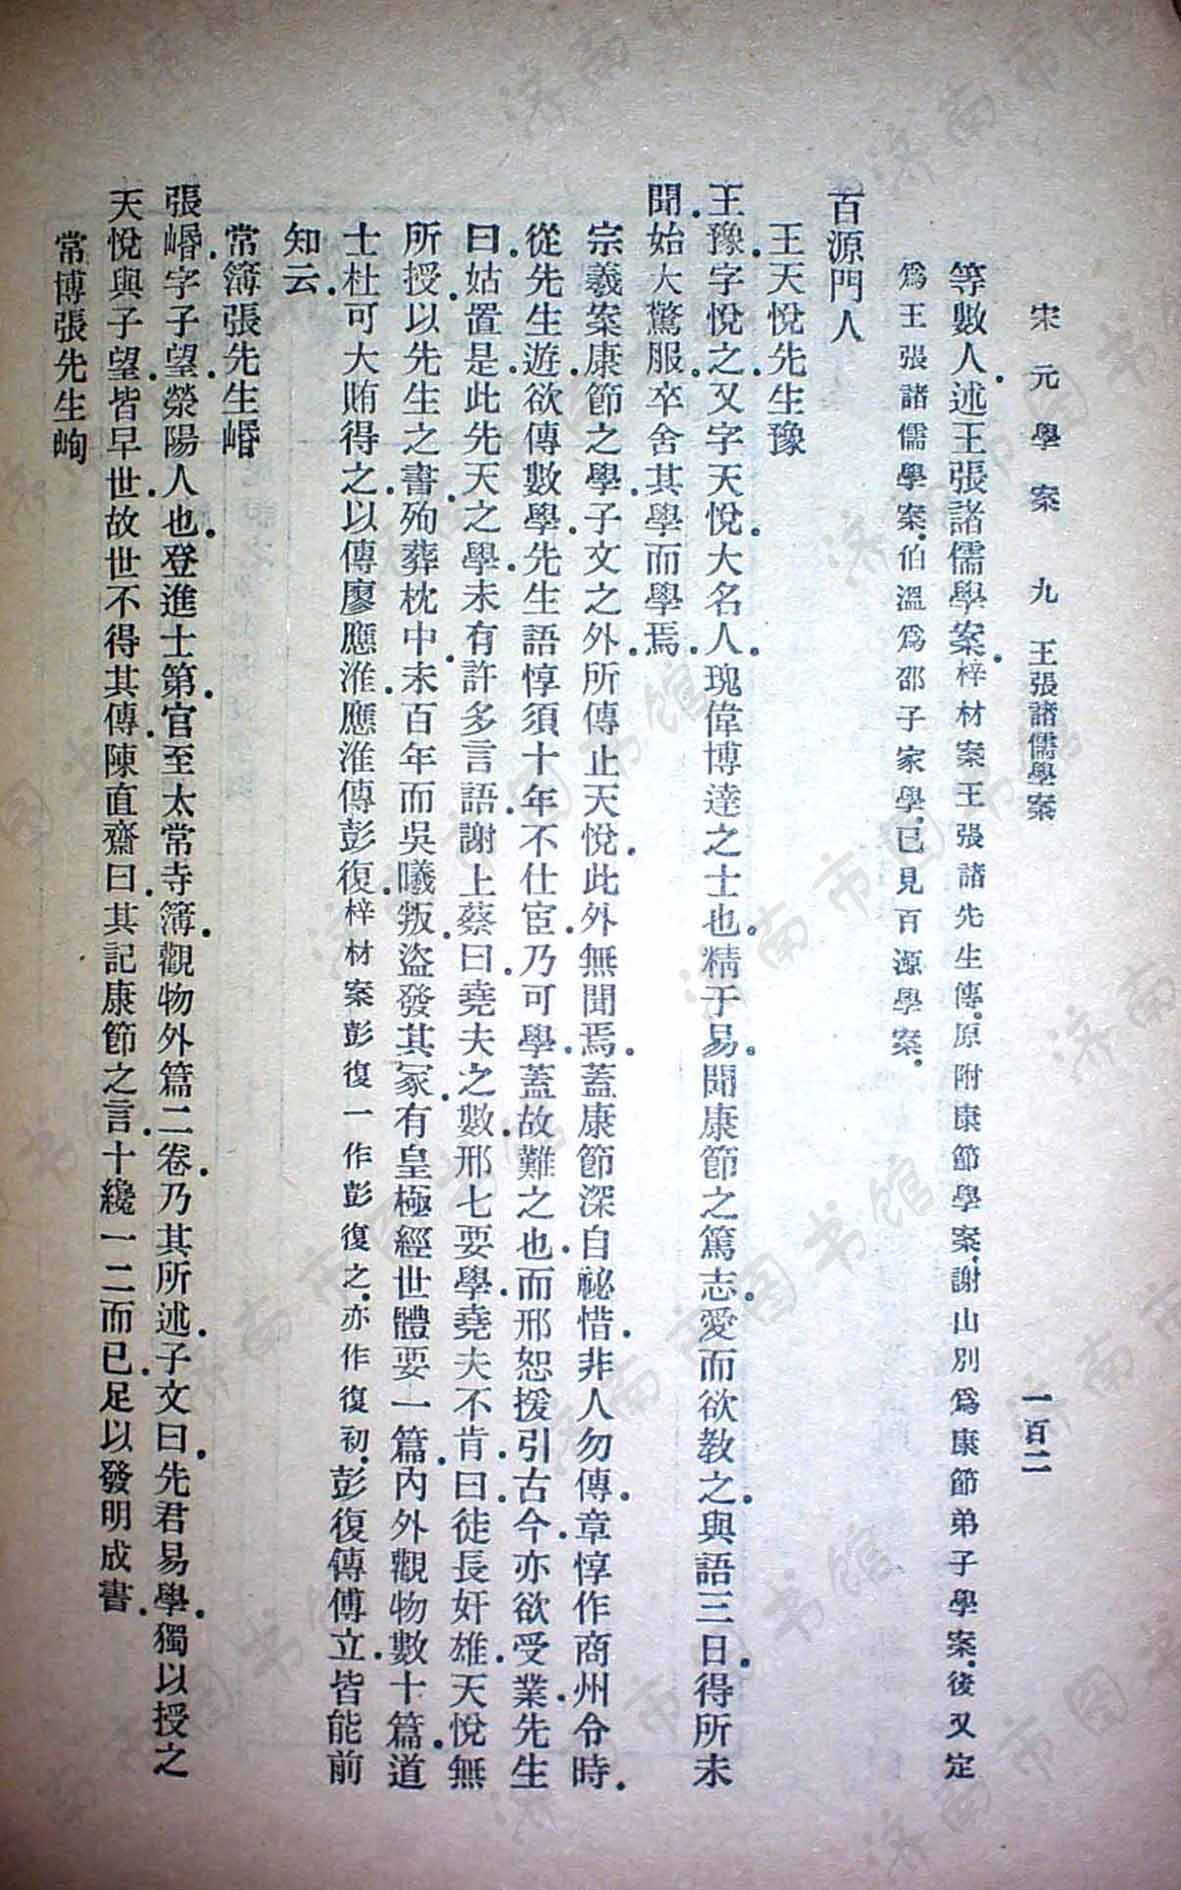 宋元學案　九　王張諸儒學案　一百二
等數人.述王張諸儒學案.梓材案王張諸先生傳.原附康節學案.謝山別爲康節弟子學案.後又定
爲王張諸儒學案.伯溫爲邵子家學.已見百源學案.
百源門人
王天悅先生豫
王豫.字悅之.又字天悅.大名人.瑰偉博達之士也.精于易.聞康節之篤志.愛而欲教之.與語三日.得所未
聞.始大驚服.卒舍其學而學焉.
宗羲案.康節之學.子文之外.所傳止天悅.此外無聞焉.蓋康節深自祕惜.非人勿傳.章惇作商州令時.
從先生遊.欲傳數學.先生語惇須十年不仕宦.乃可學.蓋故難之也.而邢恕援引古今.亦欲受業.先生
曰.姑置是.此先天之學.未有許多言語.謝上蔡曰.堯夫之數.邢七要學.堯夫不肯.曰.徒長奸雄.天悅無
所授.以先生之書.殉葬枕中.未百年而吳曦叛.盜發其冢.有皇極經世體要一篇.內外觀物數十篇.道
士杜可大賄得之.以傳廖應淮.應淮傳彭復.梓材案彭復一作彭復之.亦作復初.彭復傳傅立.皆能前
知云.
常簿張先生㟭
張㟭.字子望.滎陽人也.登進士第.官至太常寺簿.觀物外篇二卷.乃其所述.子文曰.先君易學.獨以授之
天悅與子望.皆早世.故世不得其傳.陳直齋曰.其記康節之言.十纔一二而已.足以發明成書.
常博張先生峋
濟南市图书馆